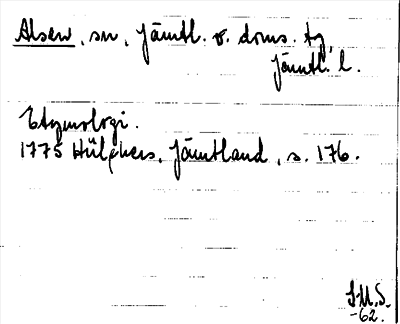 Alsen, sn, Jämtl. v. doms. tg,
Jämtl. l.
Etymologi.
1775 Hülphers, Jämtland, s. 176.
S.U.S.
-62.